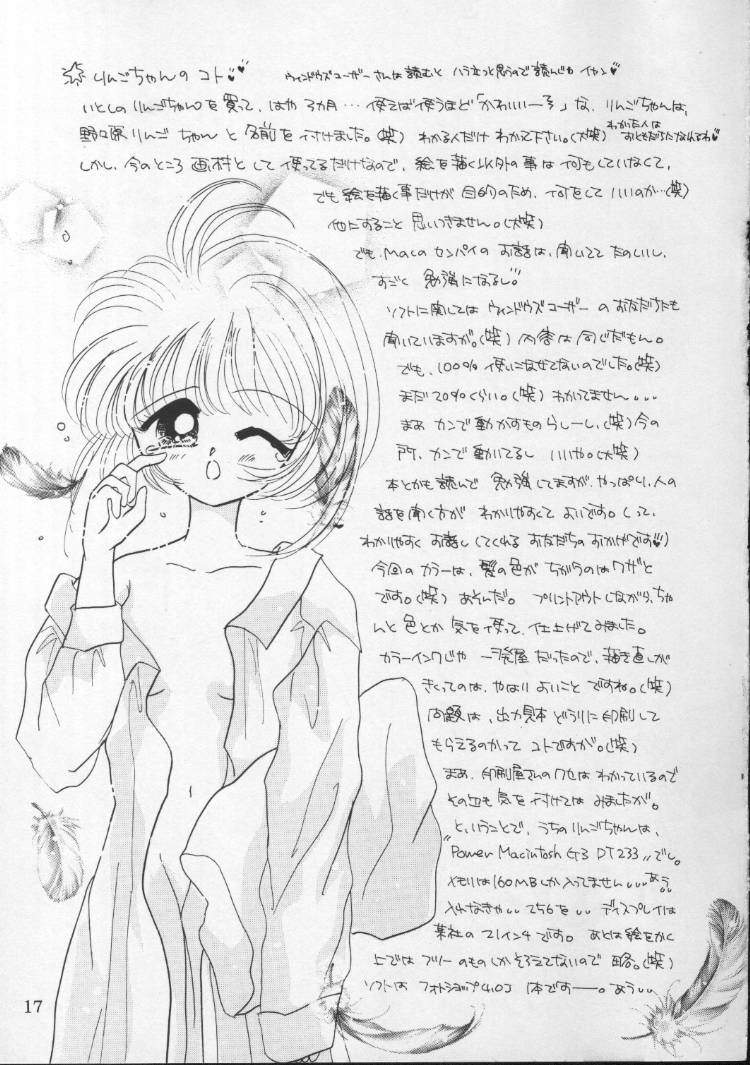 りんごちゃんのコト
ウィンドウズユーザーさんは読むと ハラ立つと思うので 読んじゃ イヤン
いとしの りんごちゃんを買って、はや 3カ月… 使えば使うほど「かわいいーろ」な、りんごちゃんは、
野々原りんごちゃん と 名前を付けました。(笑) わかる人だけ わかって下さい。(大笑) わかった人は おともだちになれてわ
しかし、今のところ 画材として使ってるだけなので、絵を描く以外の事は 何もしていなくて、
でも 絵を描く事だけが 目的のため、何をして いいのか…(笑)
他にすること 思いつきません。(大笑)
でも、Macの センパイの お話は、聞いてて たのしいし、
すごく 勉強になるし。
ソフトに関しては ウィンドウズユーザー の お友だちたちにも
聞いていますが。(笑) 内容は同じだもん。
でも、100% 使いこなせてないのでした。(笑)
まだ 20%くらい。(笑) わかってません…
まぁ カンで動かすもの らしーし、(笑)今の
所、カンで動いてるし いいや。(大笑)
本とかも読んで 勉強してますが、やっぱり、人の
話を聞く方が わかりやすくて よいです。(って、
わかりやすく お話ししてくれる お友だちの おかげです)
今回の カラーは、髪の色が ちがうのは ワザと
です。(笑) あそんだ。 プリントアウトしながら、ちゃ
んと色とか 気を使って、仕上げてみました。
カラーインクじゃ 一発屋だったので、描き直しが
きくってのは、やはり よいこと ですね。(笑)
問題は、出力見本 どうりに印刷して
もらえるのかって コトですが。(笑)
まぁ、印刷屋さんのクセは わかっているので
その辺も気を付けては みましたが。
と、いうことで、うちの りんごちゃんは、
"Power Macintosh G3 DT233"でし。
メモリは 160MBしか入ってません… あう。
入れなきゃ… 256を… ディスプレイは
某社の 21インチです。 あとは 絵をかく
上では フツーの ものしか そろえてないので 略。(笑)
ソフトは フォトショップ4.0J 1本です——。あう…
17